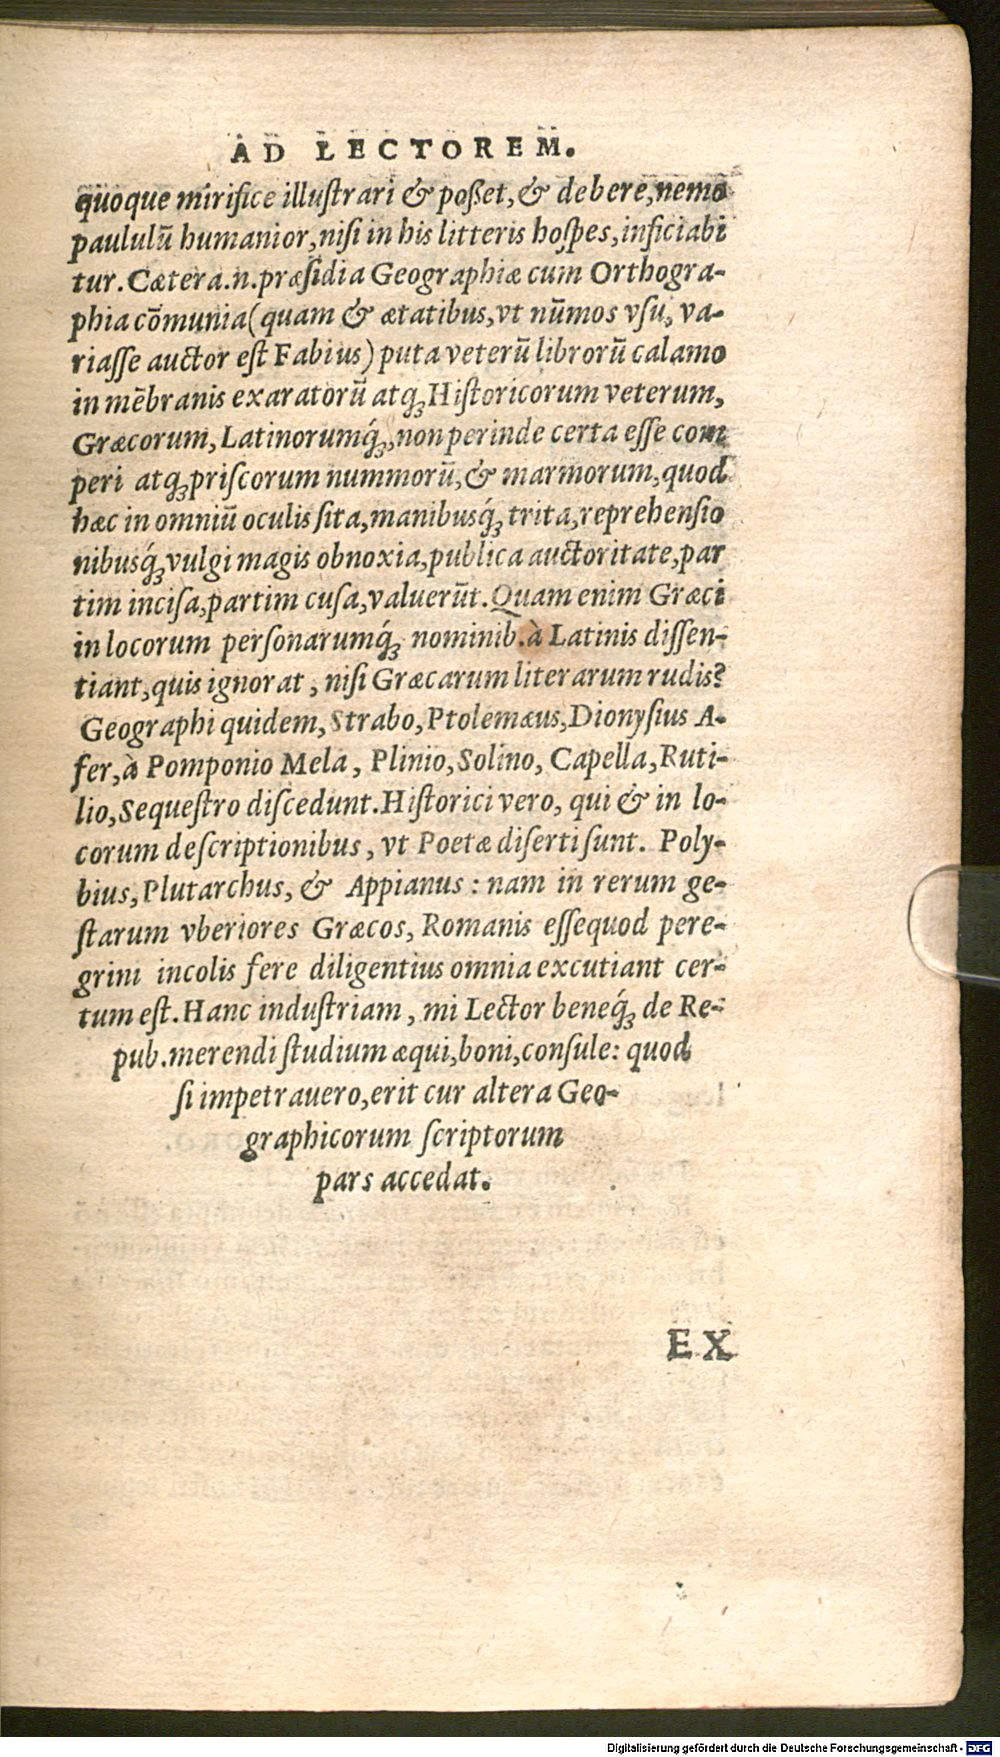 AD LECTOREM.
quoque mirifice illuſtrari & poßet, & debere, nemo
paululū humanior, niſi in his litteris hoſpes, inficiabi
tur. Cætera .n. præſidia Geographiæ cum Orthogra-
phia cōmunia (quam & ætatibus, vt nūmos vſu, va-
riaſſe auctor eſt Fabius) puta veterū librorū calamo
in mēbranis exaratorū atq; Hiſtoricorum veterum,
Græcorum, Latinorumq́;, non perinde certa eſſe com
peri atq; priſcorum nummorū, & marmorum, quod
hæc in omniū oculis ſita, manibusq́; trita, reprehenſio
nibusq́; vulgi magis obnoxia, publica auctoritate, par
tim inciſa, partim cuſa, valuerūt. Quam enim Græci
in locorum perſonarumq́; nominib. à Latinis diſſen-
tiant, quis ignorat, niſi Græcarum literarum rudis?
Geographi quidem, Strabo, Ptolemæus, Dionyſius A-
fer, à Pomponio Mela, Plinio, Solino, Capella, Ruti-
lio, Sequeſtro diſcedunt. Hiſtorici vero, qui & in lo-
corum deſcriptionibus, vt Poetæ diſerti ſunt. Poly-
bius, Plutarchus, & Appianus : nam in rerum ge-
ſtarum vberiores Græcos, Romanis eſſequod pere-
grini incolis fere diligentius omnia excutiant cer-
tum eſt. Hanc induſtriam, mi Lector beneq́; de Re-
pub. merendi ſtudium æqui, boni, conſule: quod
ſi impetrauero, erit cur altera Geo-
graphicorum ſcriptorum
pars accedat.
EX
Digitalisierung gefördert durch die Deutsche Forschungsgemeinschaft - DFG